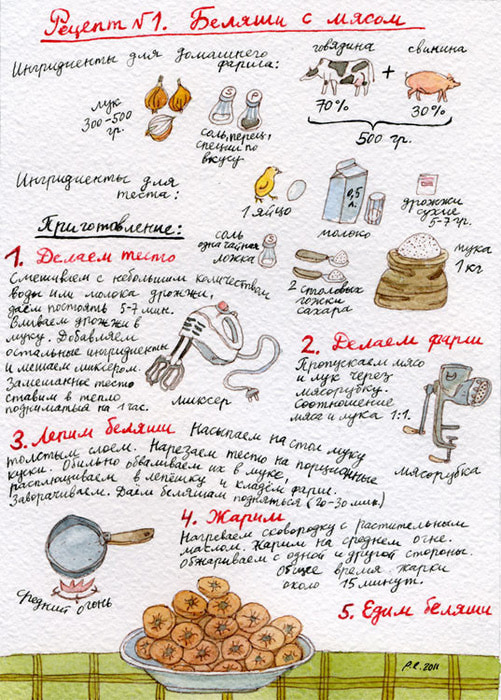 Рецепт №1. Беляши с мясом
Ингридиенты для домашнего
фарша:
говядина
свинина
+
70%
30%
500 гр.
лук
300-500
гр.
соль, перец,
специи по
вкусу
Ингридиенты для
теста:
1 яйцо
0,5
л.
молоко
дрожжи
сухие
5-7 гр.
соль
одна чайная
ложка
2 столовых
ложки
сахара
мука
1 кг
Приготовление:
1. Делаем тесто
Смешиваем с небольшим количеством
воды или молока дрожжи,
даём постоять 5-7 мин.
Вливаем дрожжи в
муку. Добавляем
остальные ингридиенты
и мешаем миксером.
Замешанное тесто
ставим в тепло
подниматься на 1 час.
миксер
2. Делаем фарш
Пропускаем мясо
и лук через
мясорубку.
Соотношение
мяса и лука 1:1.
мясорубка
3. Лепим беляши
Насыпаем на стол муку
толстым слоем. Нарезаем тесто на порционные
куски. Обильно обваливаем их в муке,
расплющиваем в лепёшку и кладём фарш.
Заворачиваем. Даём беляшам подняться (20-30 мин.)
4. Жарим
Нагреваем сковородку с растительным
маслом. Жарим на среднем огне.
Обжариваем с одной и другой стороны.
Общее время жарки
около 15 минут.
средний огонь
5. Едим беляши
Р.С. 2011